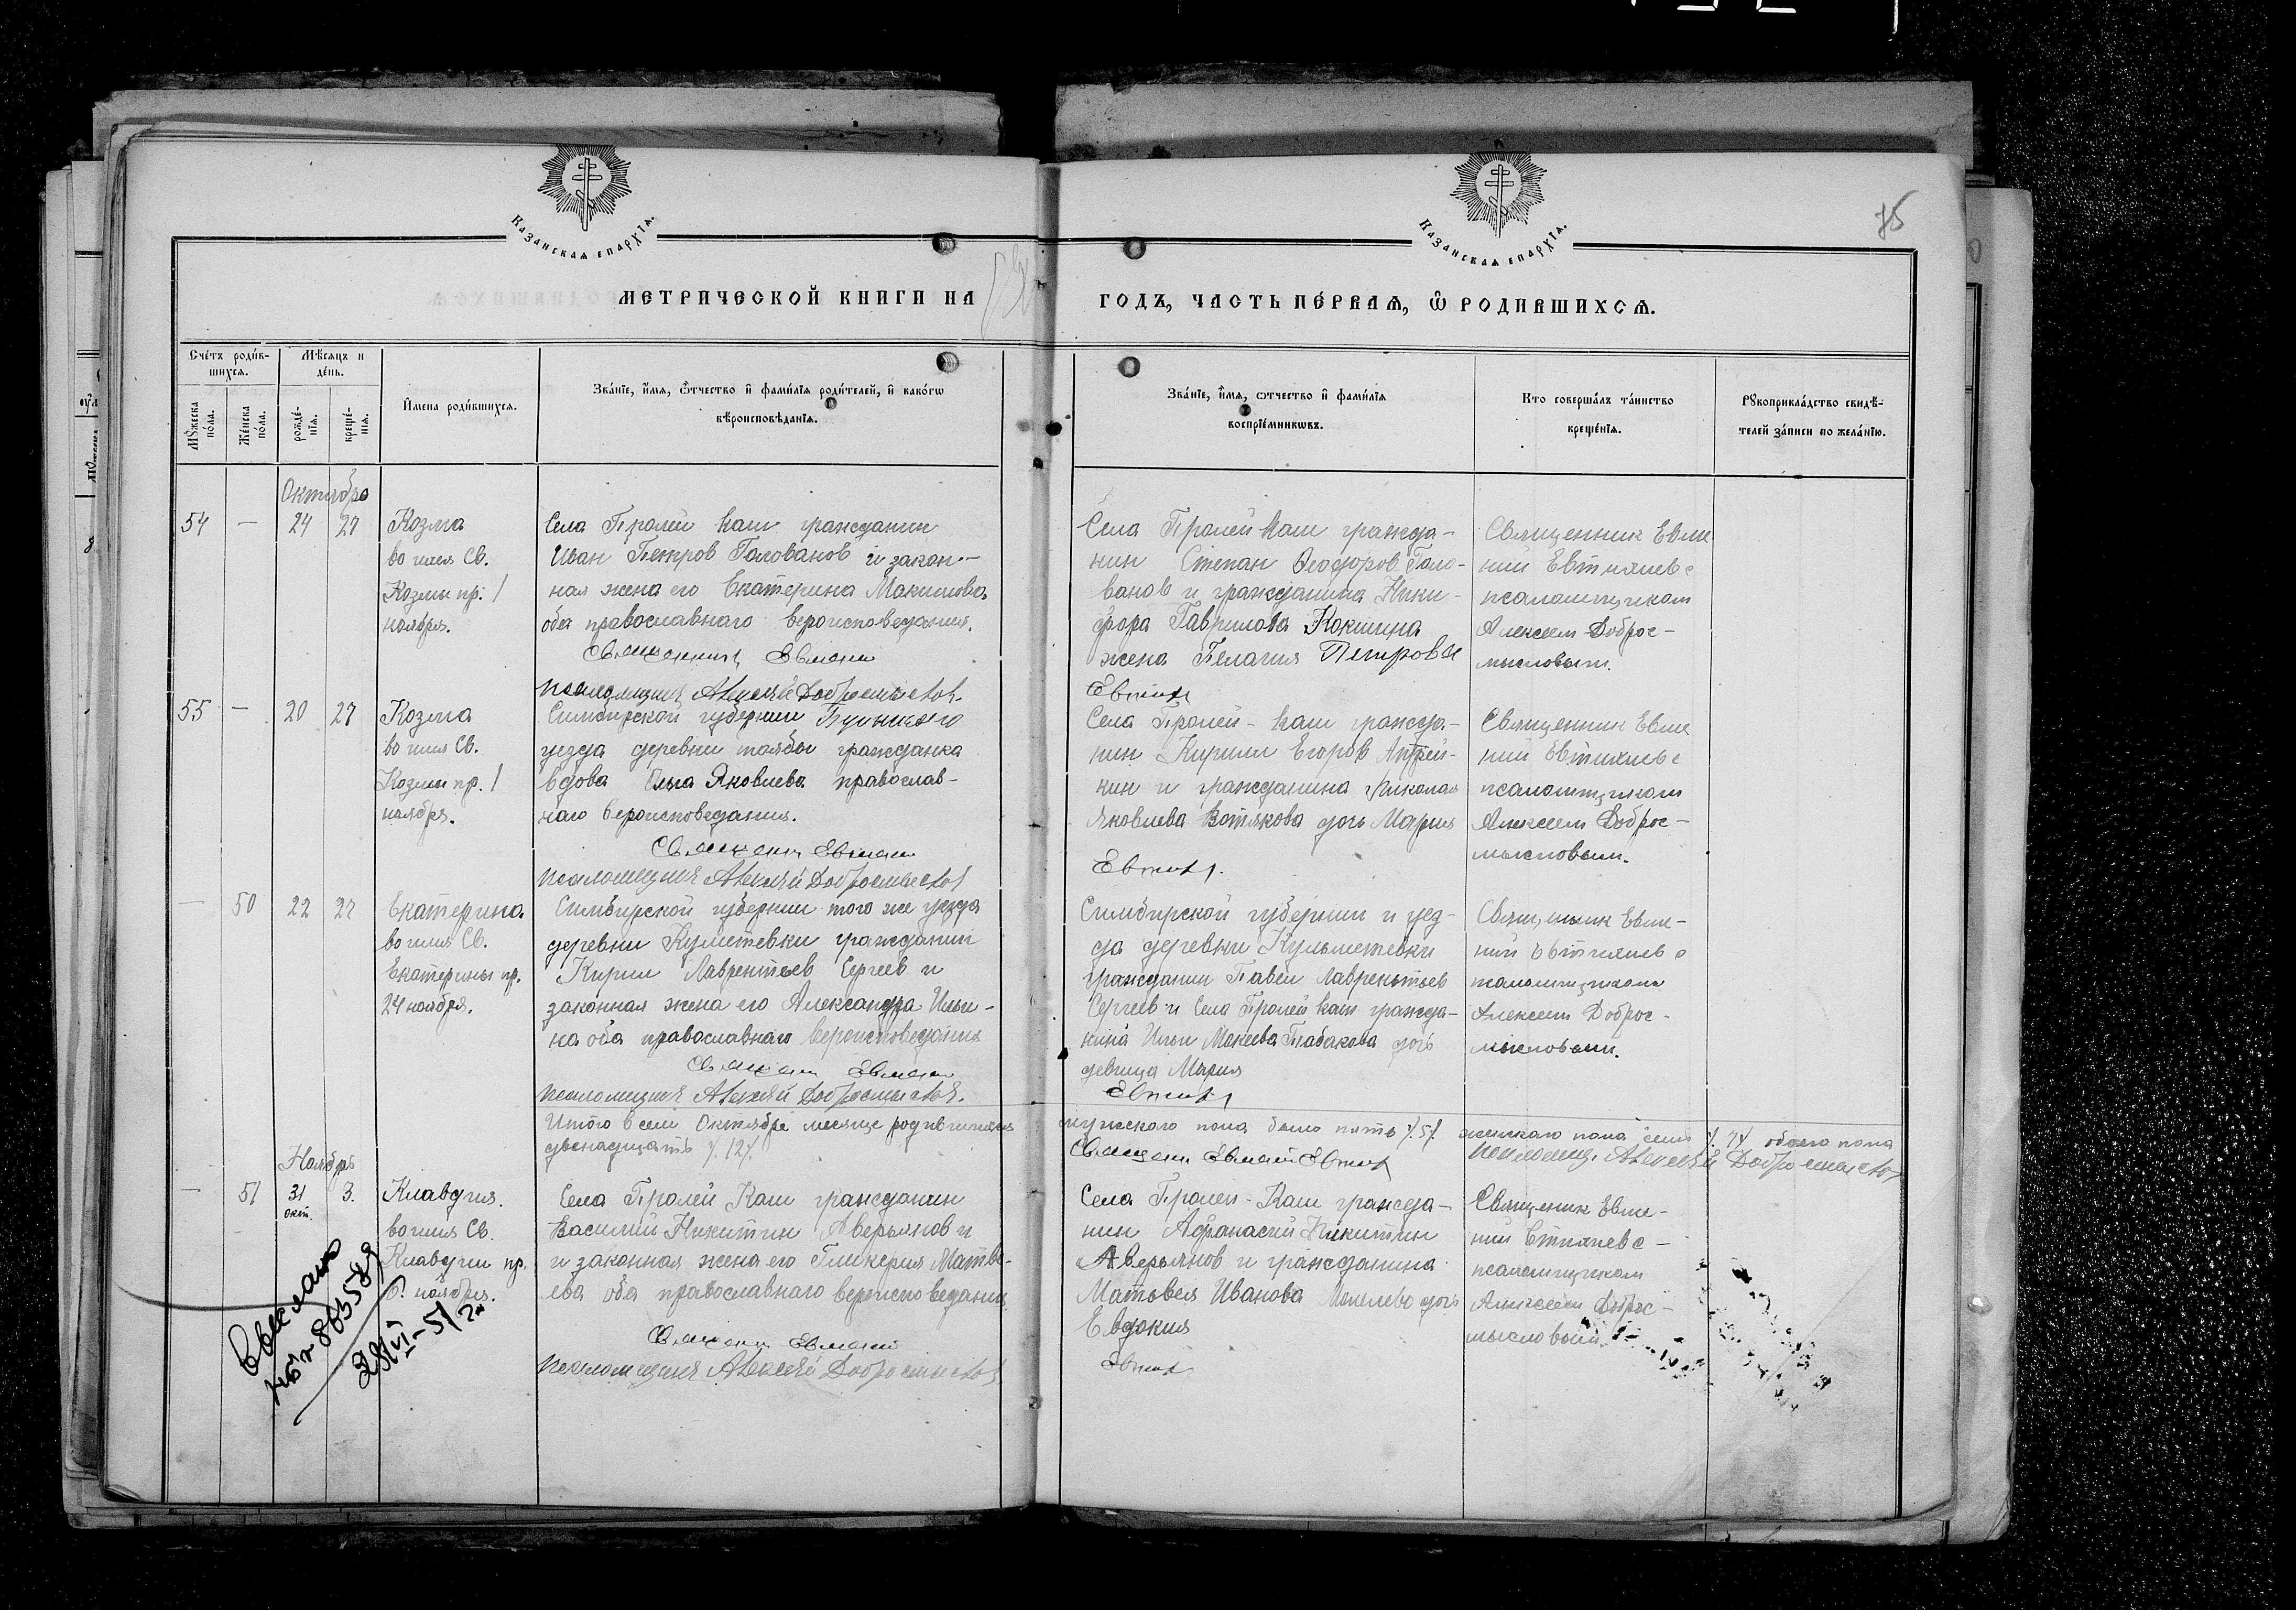 Казанская епархїя.
Казанская епархїя.
75
МЕТРИЧЕСКОЙ КНИГИ НА
ГОДЪ, ЧАСТЬ ПЕ́РВАѦ, Ѡ҆ РОДИВШИХСѦ.
Сче́тъ роди́в-
шихсѧ.
Мѣ́сѧцъ и
де́нь.
Мꙋ́жеска
по́ла.
Же́нска
по́ла.
рожде́-
нїѧ.
креще́-
нїѧ.
И҆мена роди́вшихсѧ.
Зва́нїе, и҆́мѧ, ѻ҆́тчество и҆ фами́лїѧ роди́телей, и҆ како́гѡ
вѣроисповѣ́данїѧ.
Зва́нїе, и҆́мѧ, ѻтчество и҆ фами́лїѧ
воспрїе́мникѡвъ.
Кто соверша́лъ та́инство
креще́нїѧ.
Рꙋкоприкла́дство свидѣ́-
телей за́писи по жела́нїю.
Октября
54 — 24 27 Козма
во имя Св.
Козмы пр. 1
ноября.
Села Пролей Каш гражданин
Иван Петров Голованов и закон-
ная жена его Екатерина Макимова
оба православнаго вероисповедания.
Псаломщик Алексей Добросмыслов.
Села Пролей Каш гражда-
нин Степан Феодоров Голо-
ванов и гражданина Ники-
фора Гаврилова Кокшина
жена Пелагия Петрова
Священник Евме
ний Евтихиев с
псаломщиком
Алексеем Доброс-
мысловым.
55 — 20 27 Козма
во имя Св.
Козмы пр. 1
ноября.
Симбирской губернии Буинскаго
уезда деревни таябы гражданка
вдова Ольга Яковлева православ-
наго вероисповедания.
Псаломщик Алексей Добросмыслов
Села Пролей-Каш гражда-
нин Кирилл Егоров
кин и гражданина Николая
Яковлева Вотякова дочь Мария
Священник Евме
ний Евтихиев с
псаломщиком
Алексеем Доброс-
мысловым.
— 50 22 27 Екатерина
во имя Св.
Екатерины пр.
24 ноября.
Симбирской губернии того же уезда
деревни гражданин
Кирил Лаврентьев Сергеев и
законная жена его Александра Ильи-
на оба православнаго вероисповедания
Псаломщик Алексей Добросмыслов.
Симбирской губернии и уез-
да деревни Кульметевки
гражданин Павел Лаврентьев
Сергеев и Села Пролей Каш гражда-
нина Ильи Мокеева Табакова дочь
девица Мария
Священник Евме-
ний Евтихиев с
псаломщиком
Алексеем Доброс-
мысловым.
Итого всем Октябре месяце родившихся
мужскаго пола было пять /.5/. женскаго пола семь /. 7/ обоего пола
двенадцать /. 12/.
Алексей Добросмыслов
Ноябрь
— 51 31 3. Клавдия.
окт.
во имя Св.
Клавдии пр.
6. ноября.
Села Пролей Каш гражданин
Василий Никитин Аверьянов и
и законная жена его Гликерия Матве-
ева оба православнаго вероисповедания
Псаломщик Алексей Добросмыслов
Села Пролей-Каш гражда-
нин Афанасий Никитин
Аверьянов и гражданина
Матовея Иванова дочь
Евдокия
Священник Евме-
ний с
псаломщиком
Алексеем Доброс-
мысловым.
Выслано